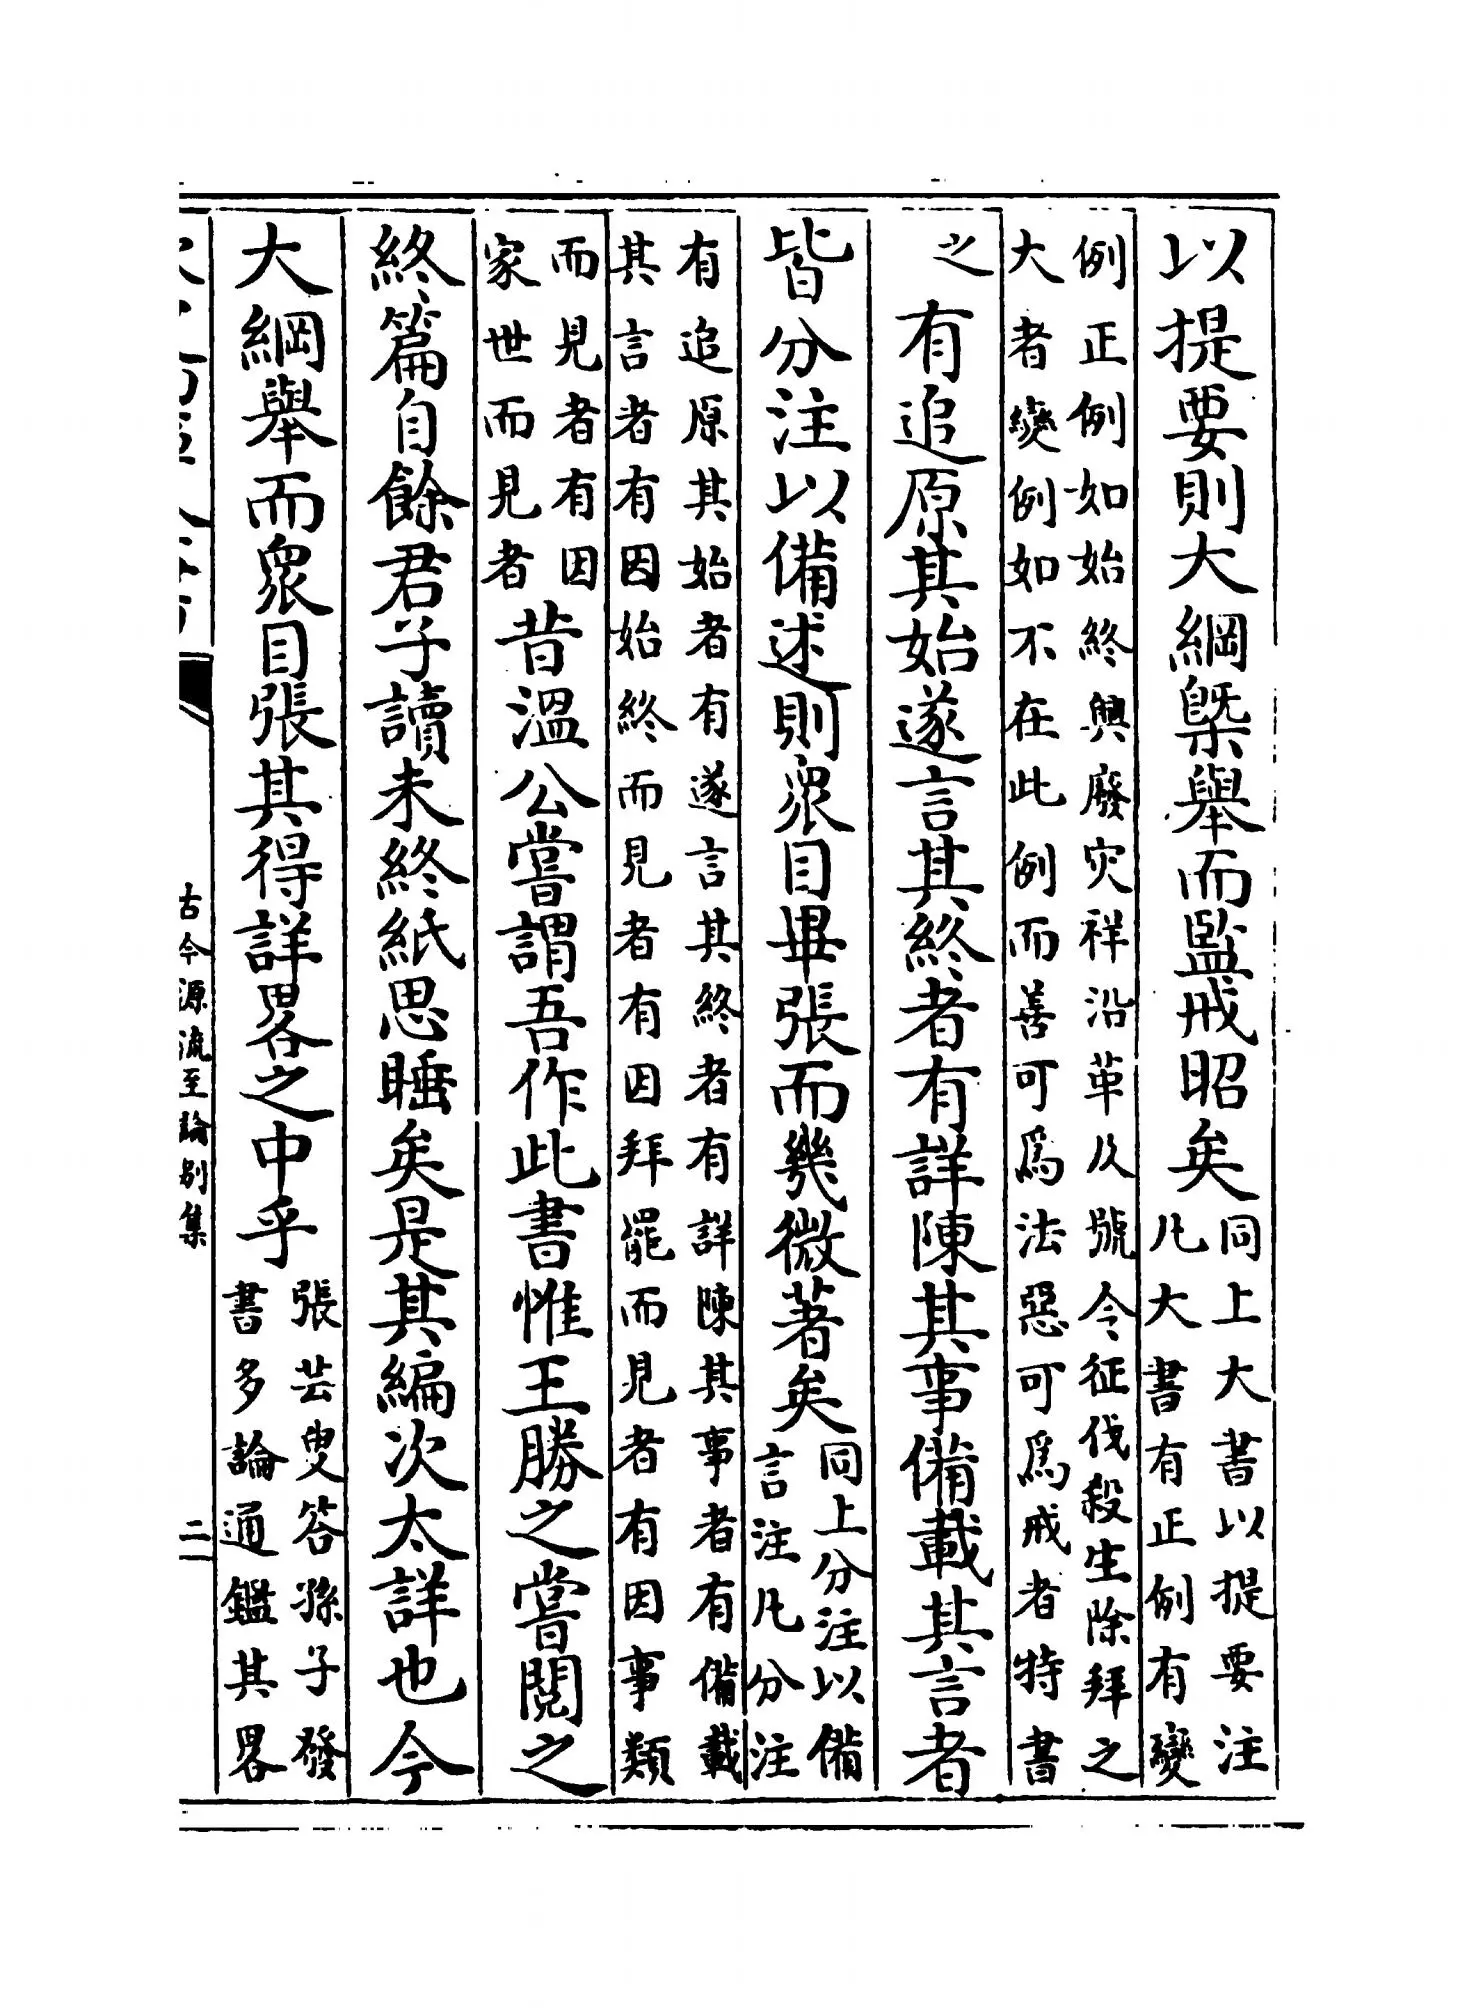 以提要則大綱槩舉而監戒昭矣同上大書以提要注
凡大書有正例有變
例正例如始終興廢灾祥沿革及號令征伐殺生除拜之
大者變例如不在此例而善可爲法惡可爲戒者特書
之有追原其始遂言其終者有詳陳其事備載其言者
皆分注以備述則衆目畢張而幾微著矣同上分注以備
言注凡分注
有追原其始者有遂言其終者有詳陳其事者有備載
其言者有因始終而見者有因拜罷而見者有因事類
而見者有因
家世而見者昔溫公嘗謂吾作此書惟王勝之嘗閱之
終篇自餘君子讀未終紙思睡矣是其編次太詳也今
大綱舉而衆目張其得詳畧之中乎張芸叟答孫子發
書多論通鑑其畧
古今源流至論别集
二